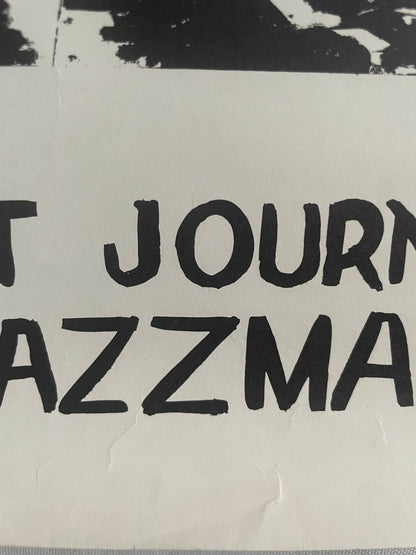 T JOURN
AZZMA